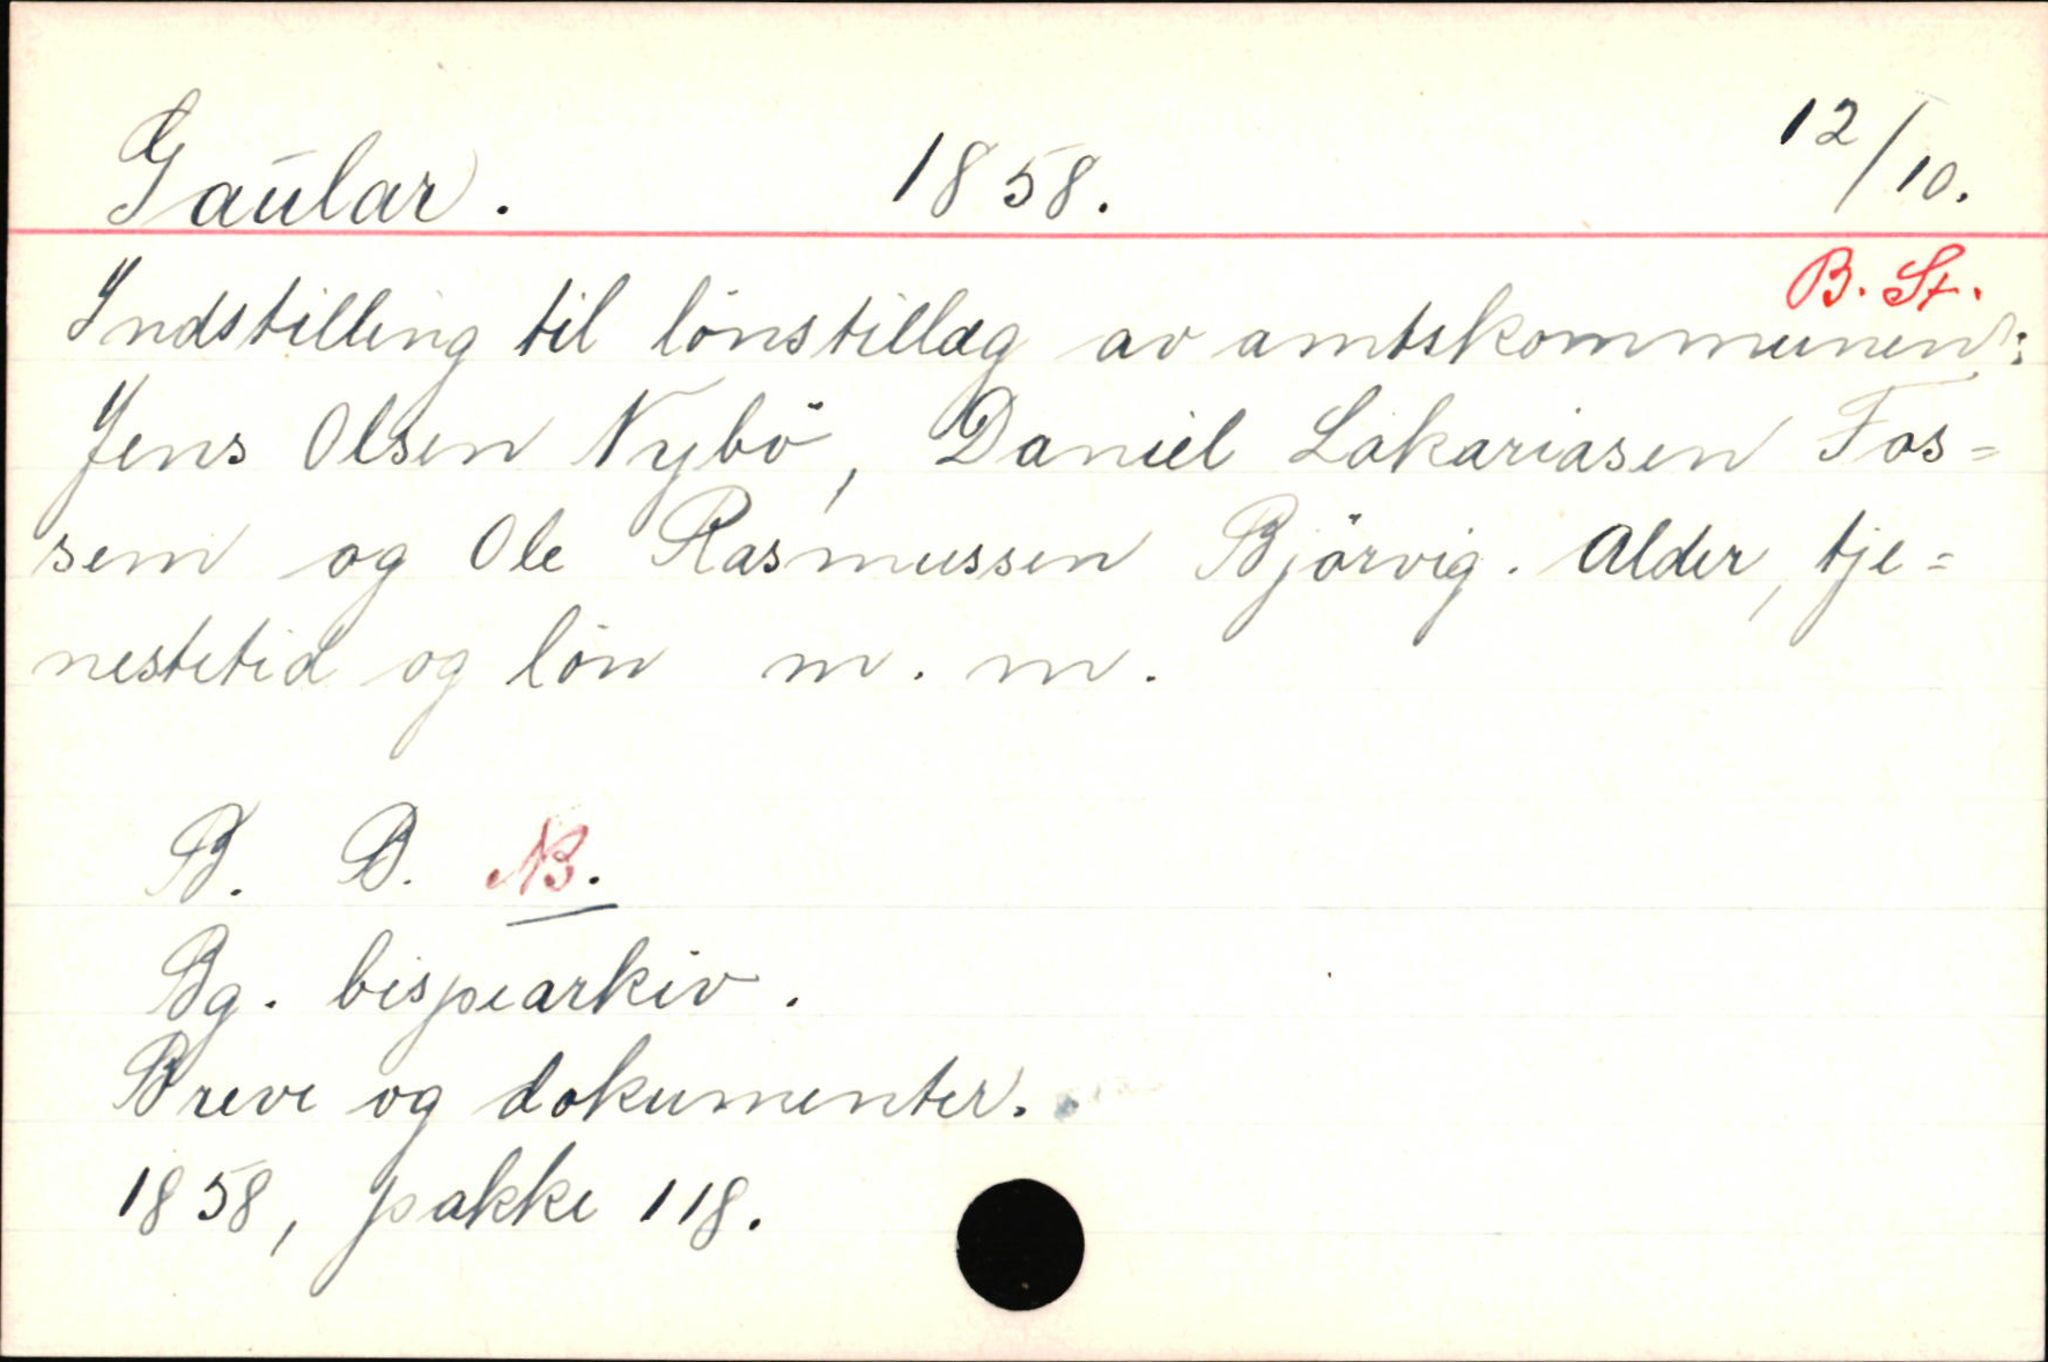 Gaular. 1858. 12/10.
B. St.
Indstilling til lönstillæg av amtskommunen:
Jens Olsen Nybö, Daniel Sakariasen Fos=
sem og Ole Rasmussen Bjørvig. Alder, tje=
nestetid og lön m. m.
B. D. NB.
Bg. bispearkiv.
Breve og dokumenter.
1858, pakke 118.